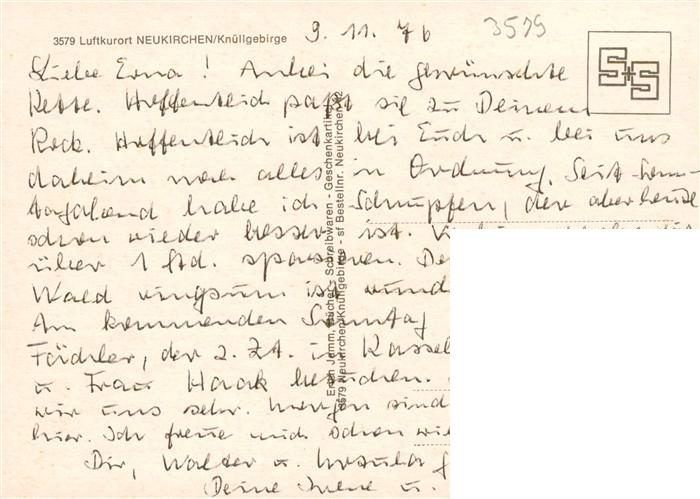 3579 Luftkurort NEUKIRCHEN/Knüllgebirge
9. 11. 76
3579
S+S
Liebe Erna! Anbei die gewünschte
Kette. Hoffentlich paßt sie zu Deinem
Rock. Hoffentlich ist bei Euch u. bei uns
daheim noch alles in Ordnung. Seit Sonn-
tagabend habe ich Schnupfen, der aber heute
schon wieder besser ist.
über 1 Std. spazieren.
Wald ringsum ist
Am kommenden Sonntag
der z. Zt. in Kassel
u. Frau Haack besuchen.
wir uns sehr. Morgen sind
hier. Ich freue mich schon
Dir, Walter u. Ursula
Deine Irene u.
Erich Jamm, Bücher - Schreibwaren - Geschenkartikel
3579 Neukirchen/Knüllgebirge - sf Bestellnr. Neukirchen